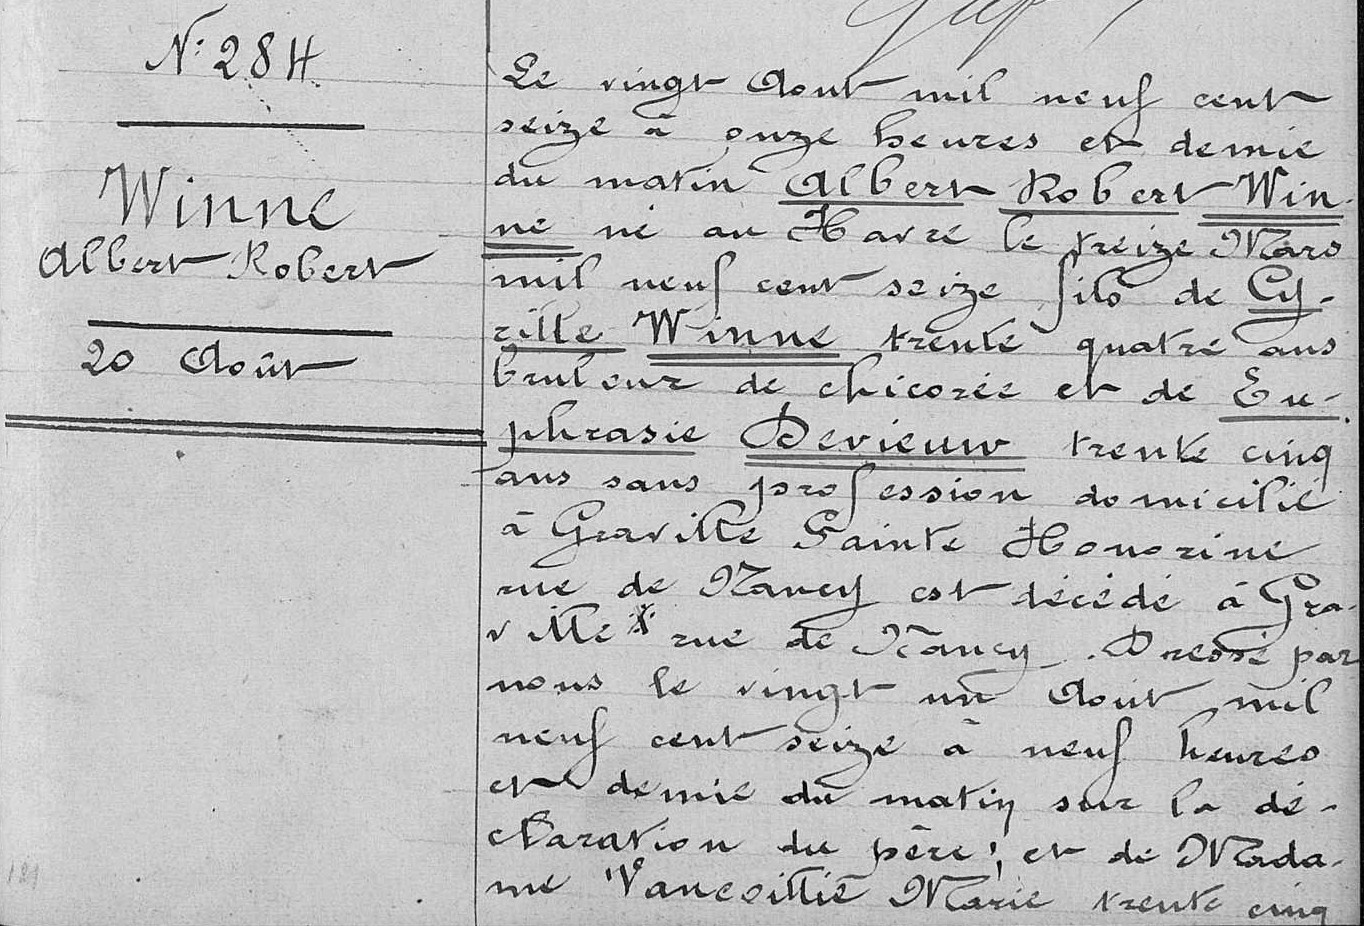 N: 284
Winne
Albert Robert
20 Août
Le vingt Aout mil neuf cent
seize à onze heures et demie
du matin Albert Robert Win-
ne né au Havre le treize Mars
mil neuf cent seize fils de Cy-
rille Winne trente quatre ans
bruleur de chicorée et de Eu-
phrasie Devieuw trente cinq
ans sans profession domicilié
à Graville Sainte Honorine
rue de Nancy est décédé à Gra-
ville rue de Nancy. Dressé par
nous le vingt un Aout mil
neuf cent seize à neuf heures
et demie du matin sur la dé-
claration du père, et de Mada-
me Vancoillie Marie trente cinq